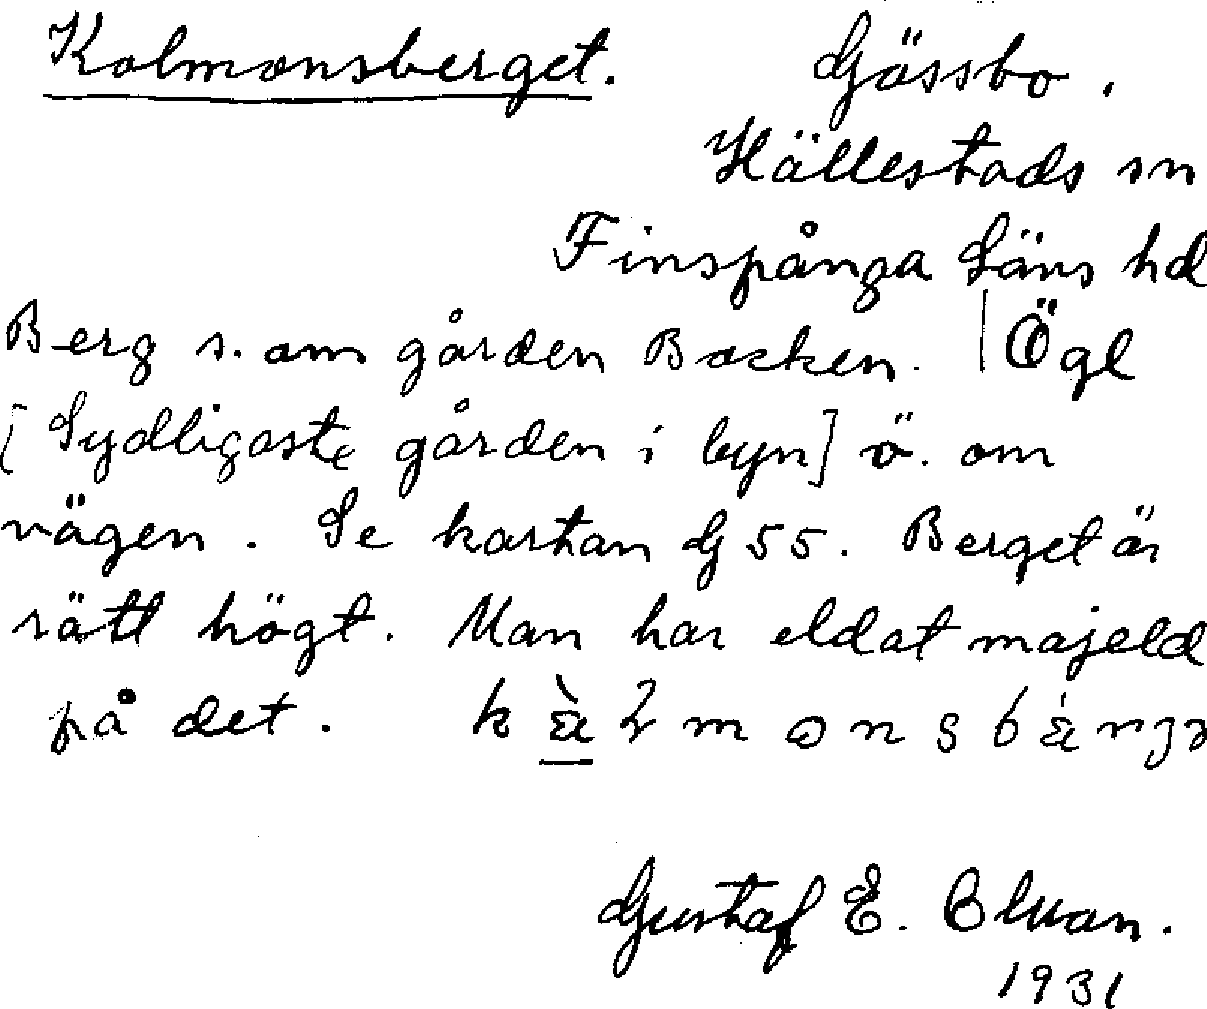 Kolmonsberget. Gässbo.
Hällestads sn
Finspånga Läns hd
Berg s. om gården Backen. | Ögl
[Sydligaste gården i byn] ö. om
vägen. Se kartan G 55. Berget är
rätt högt. Man har eldat majeld
på det.
Gustaf E. Bluan.
1931